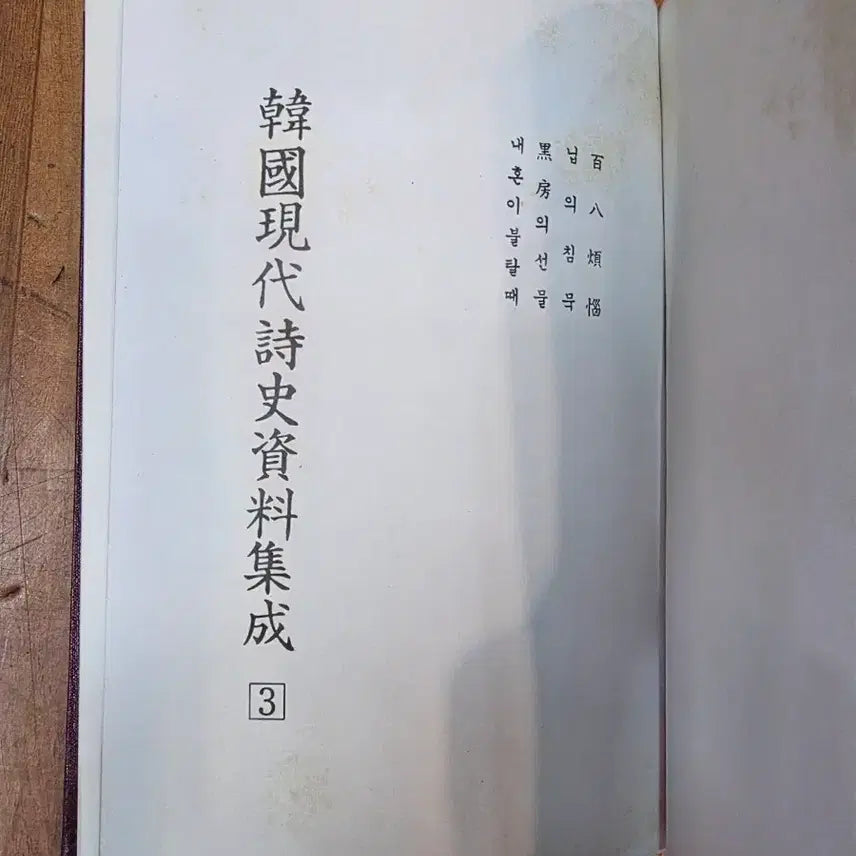 百八煩惱
님의침묵
黒房의선물
내혼이불탈때
韓國現代詩史資料集成
3